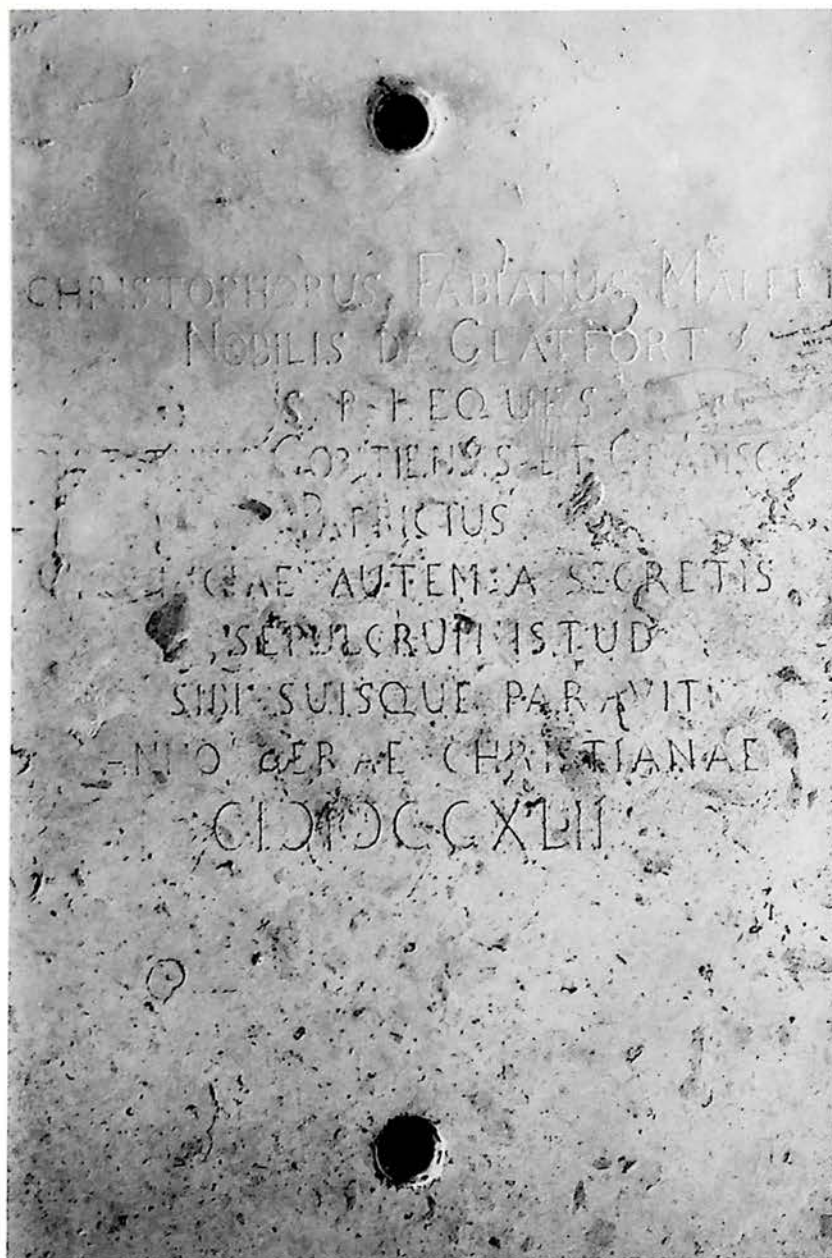 CHRISTOPHORUS FABIANUS
NOBILIS DE
S. R. I. EQUES
GORITIENSIS ET
PATRICIUS
AUTEM A SECRETIS
SEPULCRUM ISTUD
SIBI SUISQUE PARAVIT
ANNO AERAE CHRISTIANAE
CIↃIↃCCXLII